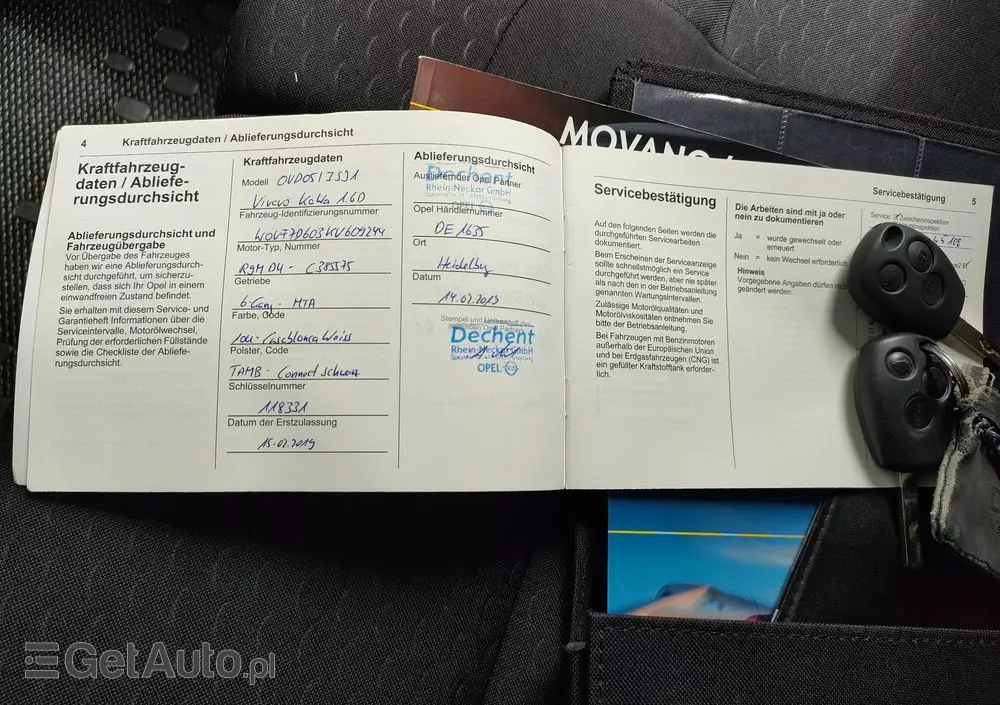 MOVANO
4 Kraftfahrzeugdaten / Ablieferungsdurchsicht
Kraftfahrzeug-
daten / Abliefe-
rungsdurchsicht
Ablieferungsdurchsicht und
Fahrzeugübergabe
Vor Übergabe des Fahrzeuges
haben wir eine Ablieferungsdurch-
sicht durchgeführt, um sicherzu-
stellen, dass sich Ihr Opel in einem
einwandfreien Zustand befindet.
Sie erhalten mit diesem Service- und
Garantieheft Informationen über die
Serviceintervalle, Motorölwechsel,
Prüfung der erforderlichen Füllstände
sowie die Checkliste der Abliefe-
rungsdurchsicht.
Kraftfahrzeugdaten
Modell OVD05IJSS1
Vivaro KaWa 1.6D
Fahrzeug-Identifizierungsnummer
W0V77D603KV609244
Motor-Typ, Nummer
R9M D4 - C385575
Getriebe
6-Gang - MTA
Farbe, Code
10U - Casablanca Weiss
Polster, Code
TAMB - Connect schwarz
Schlüsselnummer
118331
Datum der Erstzulassung
15.02.2019
Ablieferungsdurchsicht
Ausliefernder Opel Partner
Dechent
Rhein-Neckar GmbH
OPEL
Opel Händlernummer
DE 1635
Ort
Heidelberg
Datum
14.02.2019
Stempel und Unterschrift des
Dechent
Rhein-Neckar GmbH
OPEL
Servicebestätigung 5
Servicebestätigung
Auf den folgenden Seiten werden die
durchgeführten Servicearbeiten
dokumentiert.
Beim Erscheinen der Serviceanzeige
sollte schnellstmöglich ein Service
durchgeführt werden, aber nie später
als nach den in der Betriebsanleitung
genannten Wartungsintervallen.
Zulässige Motorölqualitäten und
Motorölviskositäten entnehmen Sie
bitte der Betriebsanleitung.
Bei Fahrzeugen mit Benzinmotoren
außerhalb der Europäischen Union
und bei Erdgasfahrzeugen (CNG) ist
ein gefüllter Kraftstofftank erforder-
lich.
Die Arbeiten sind mit ja oder
nein zu dokumentieren
Ja = wurde gewechselt oder
erneuert
Nein = kein Wechsel erforderlich
Hinweis
Vorgegebene Angaben dürfen nicht
geändert werden.
Service: Zwischeninspektion
GetAuto.pl